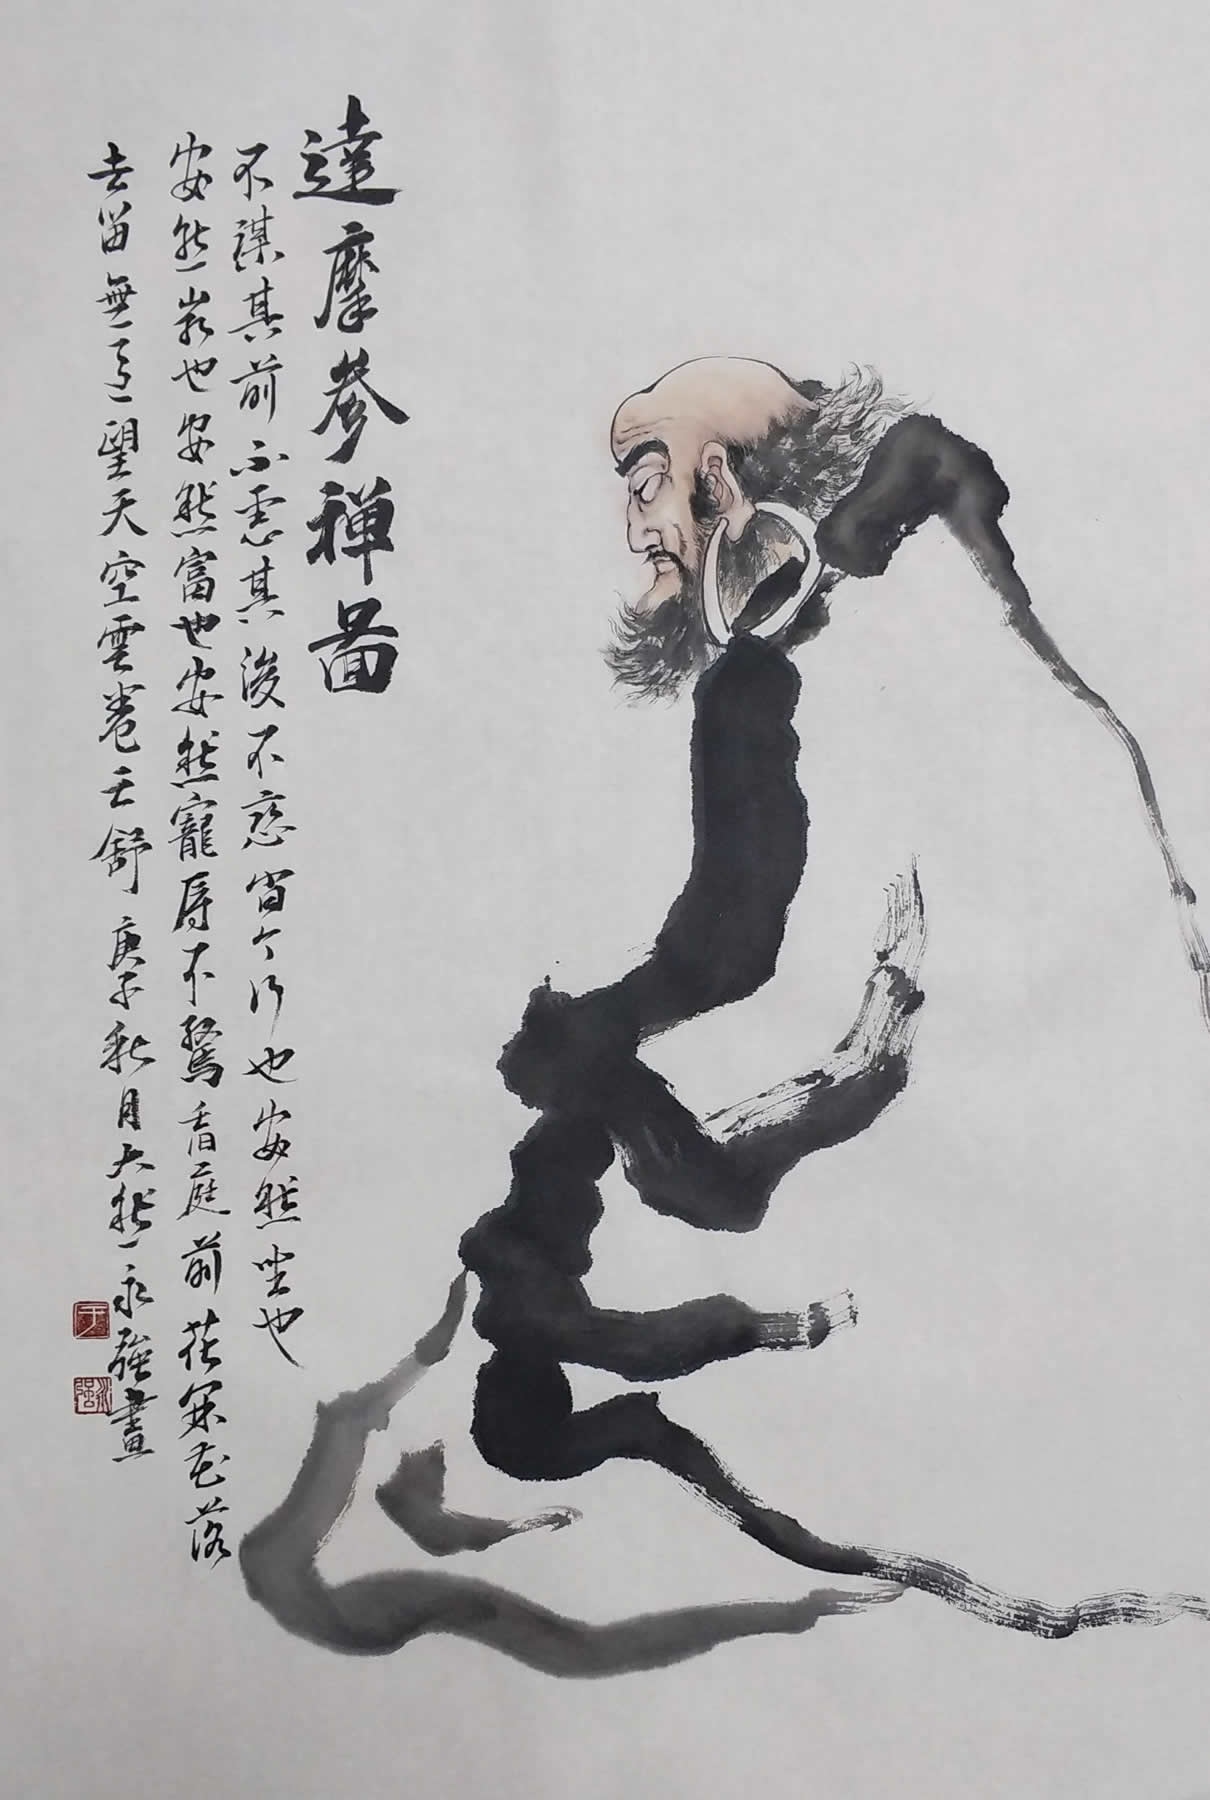 達摩参禅圖
不謀其前不慮其後不戀當今行也安然坐也
安然窮也安然富也安然寵辱不驚看庭前花開花落
去留無意望天空雲卷雲舒庚子秋月大然永強畫
永强